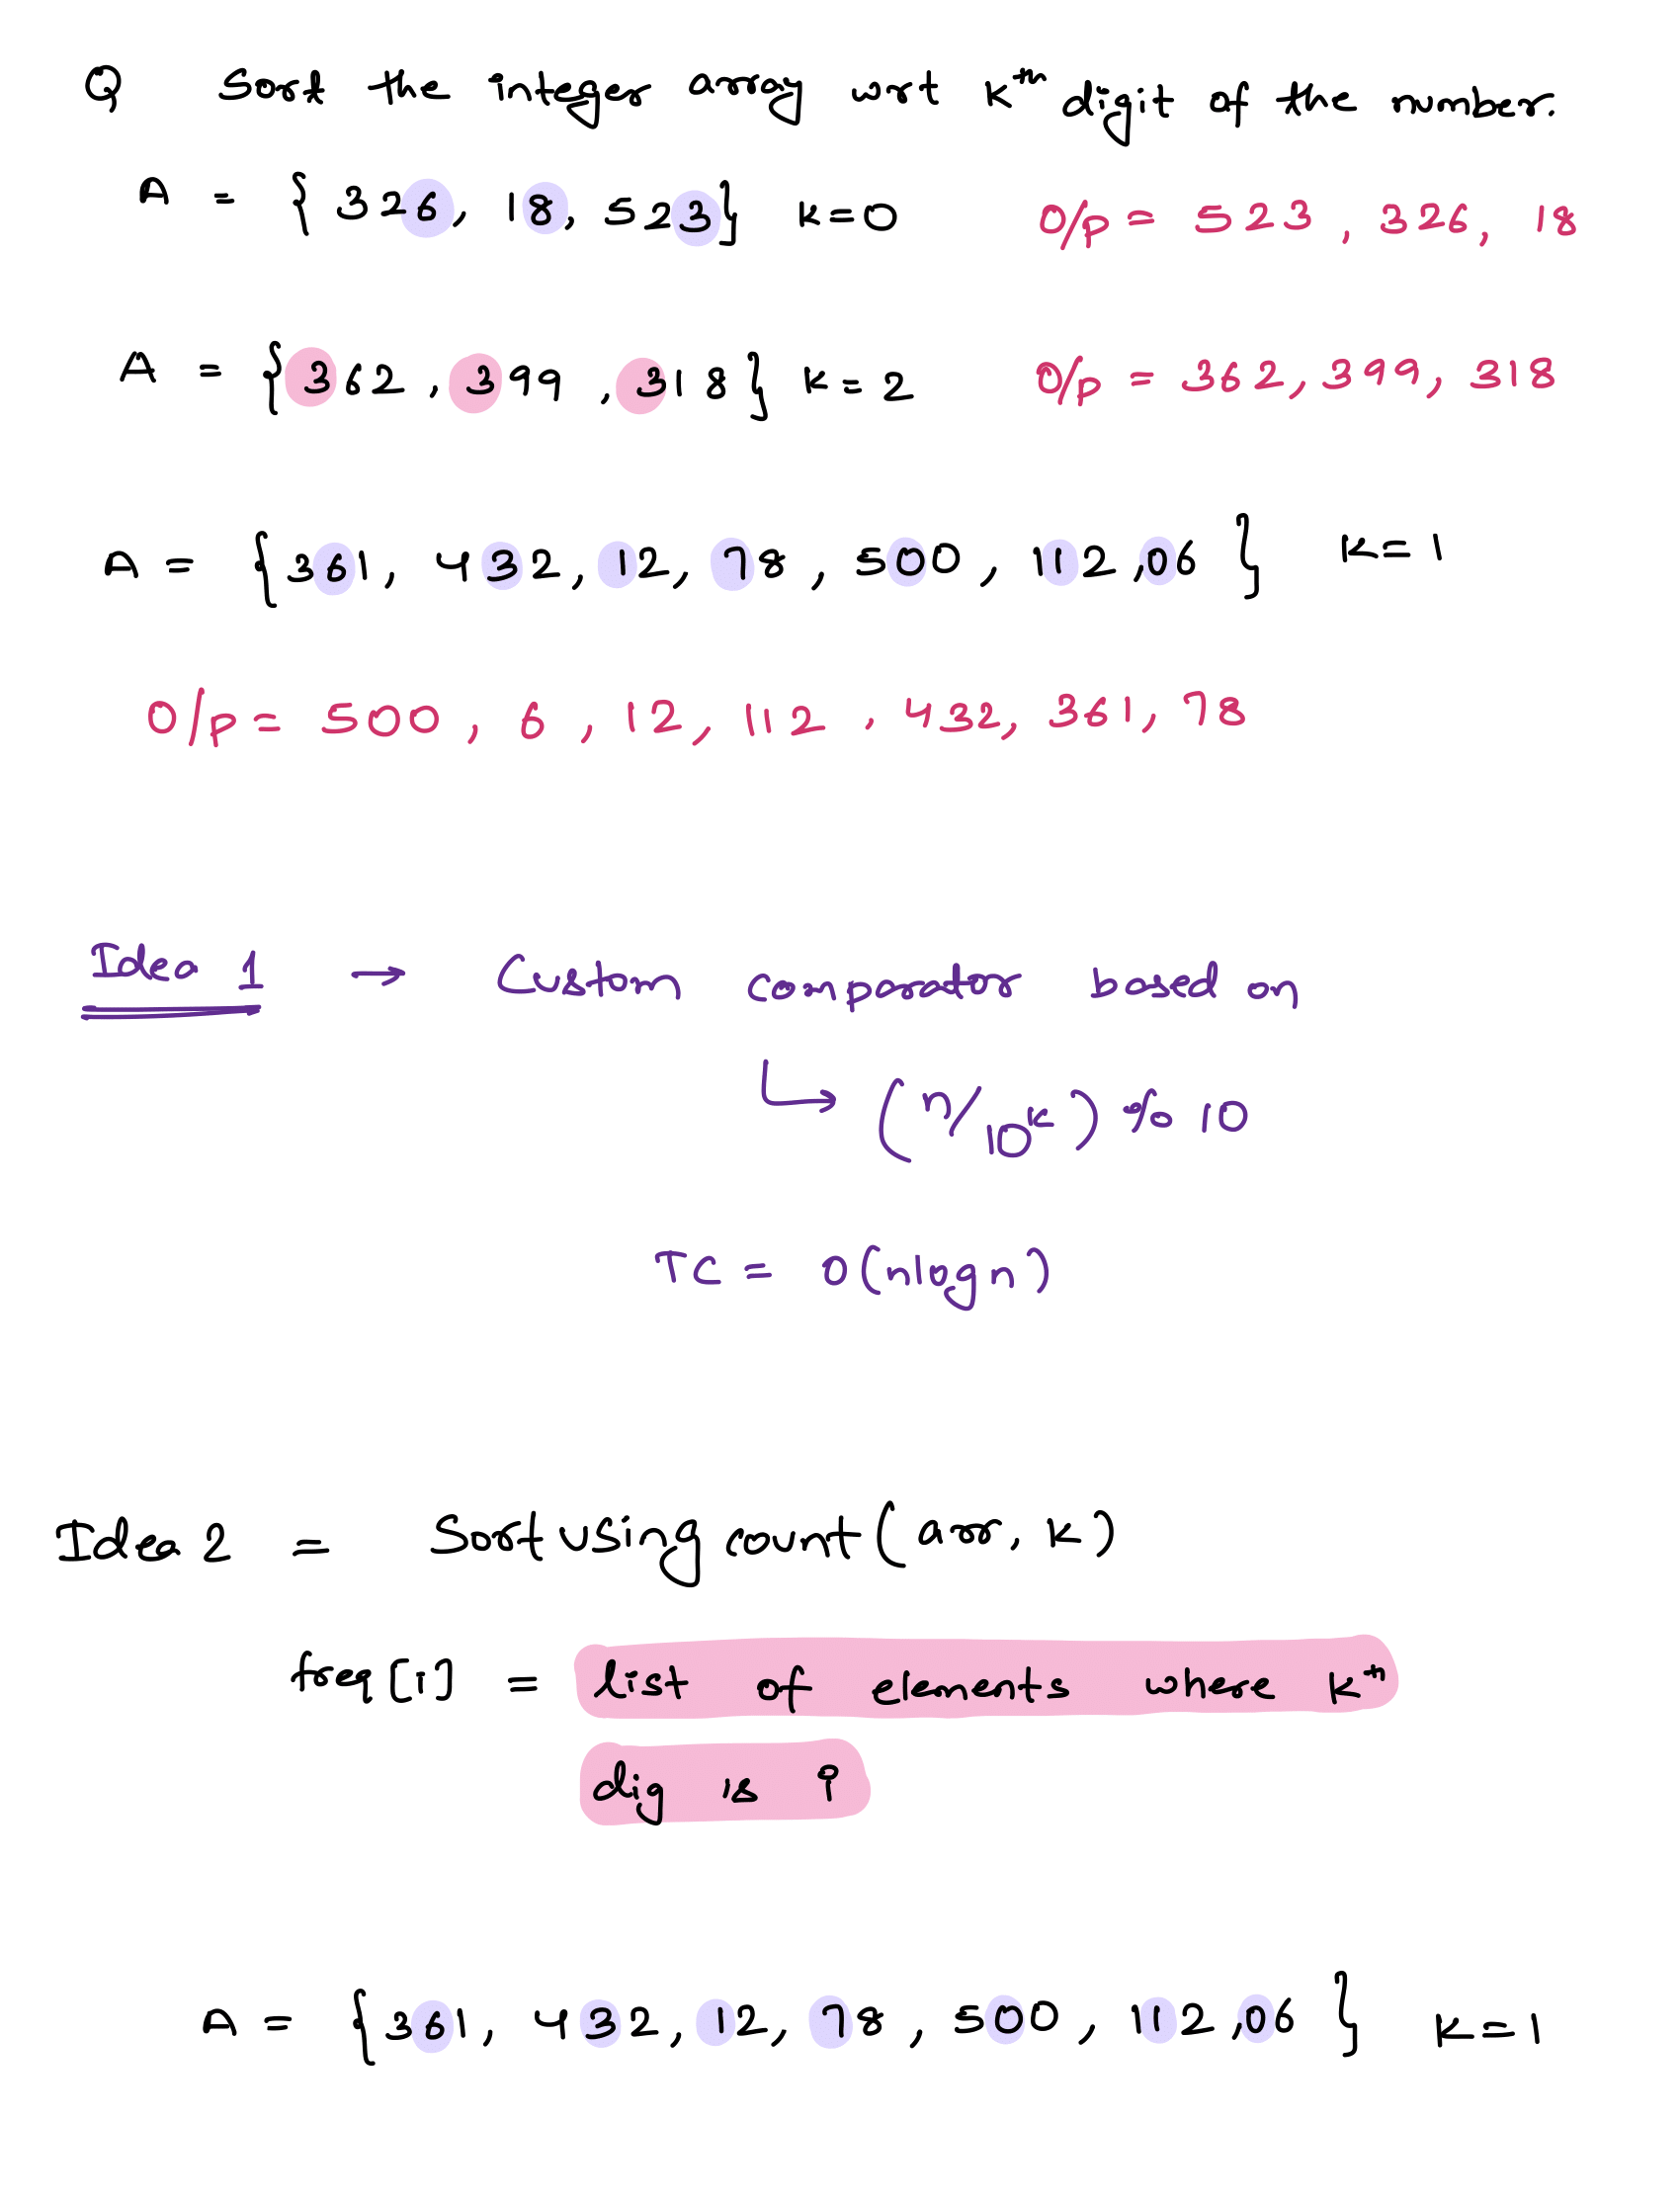 Q Sort the integer array wrt Kᵗʰ digit of the number.
A = { 326, 18, 523} K=0 O/p = 523, 326, 18
A = {362, 399, 318} K=2 O/p = 362, 399, 318
A = {361, 432, 12, 78, 500, 112, 06 } K=1
O/p = 500, 6, 12, 112, 432, 361, 78
Idea 1 → Custom comparator based on
↳ (n/10ᴷ) % 10
TC = O(nlogn)
Idea 2 = Sort using count (arr, K)
freq [i] = list of elements where Kᵗʰ
dig is i
A = {361, 432, 12, 78, 500, 112, 06 } K=1